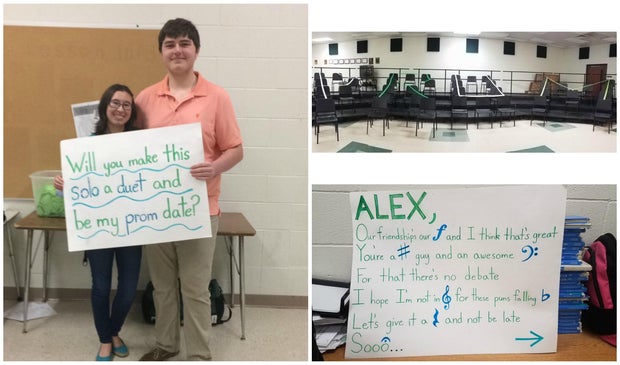 Will you make this
solo a duet and
be my prom date?
ALEX,
Our friendship's our 𝆑 and I think that's great
You're a # guy and an awesome 𝄢
For that there's no debate
I hope I'm not in 𝄞 for these puns falling ♭
Let's give it a 𝄽 and not be late
Sooo... →